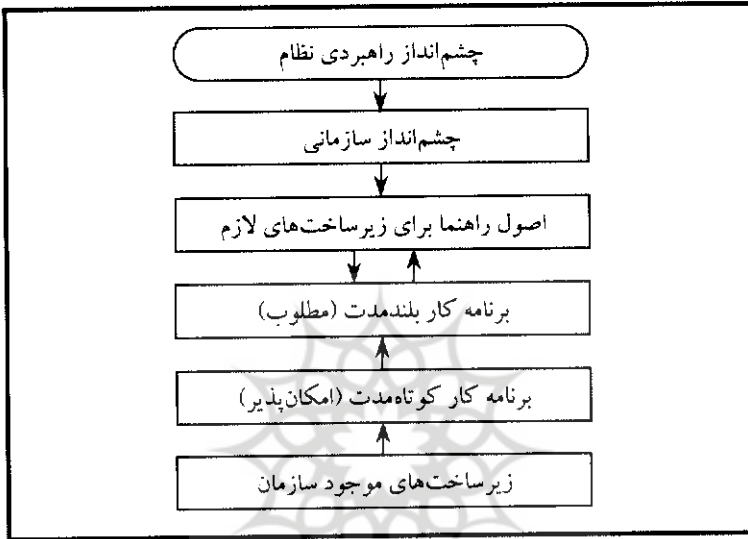 چشم‌انداز راهبردی نظام
چشم‌انداز سازمانی
اصول راهنما برای زیرساخت‌های لازم
برنامه کار بلندمدت (مطلوب)
برنامه کار کوتاه‌مدت (امکان‌پذیر)
زیرساخت‌های موجود سازمان